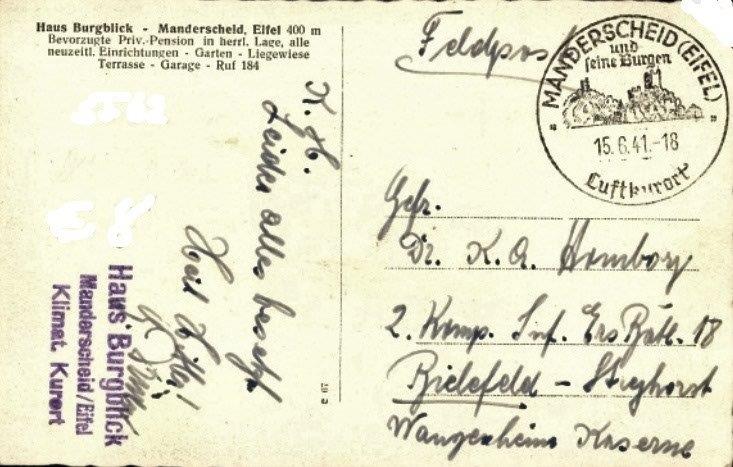 Haus Burgblick - Manderscheid, Eifel 400 m
Bevorzugte Priv.-Pension in herrl. Lage, alle
neuzeitl. Einrichtungen - Garten - Liegewiese
Terrasse - Garage - Ruf 184
Feldpost
MANDERSCHEID (EIFEL)
und
seine Burgen
15.6.41.-18
Luftkurort
K. H.
Leider alles besetzt
Heil Hitler!
Haus Burgblick
Manderscheid/Eifel
Klimat. Kurort
Gefr.
Dr. K. A. Homborg
2. Komp. Inf. Ers Batl. 18
Bielefeld - Sieghorst
Wangenheim Kaserne